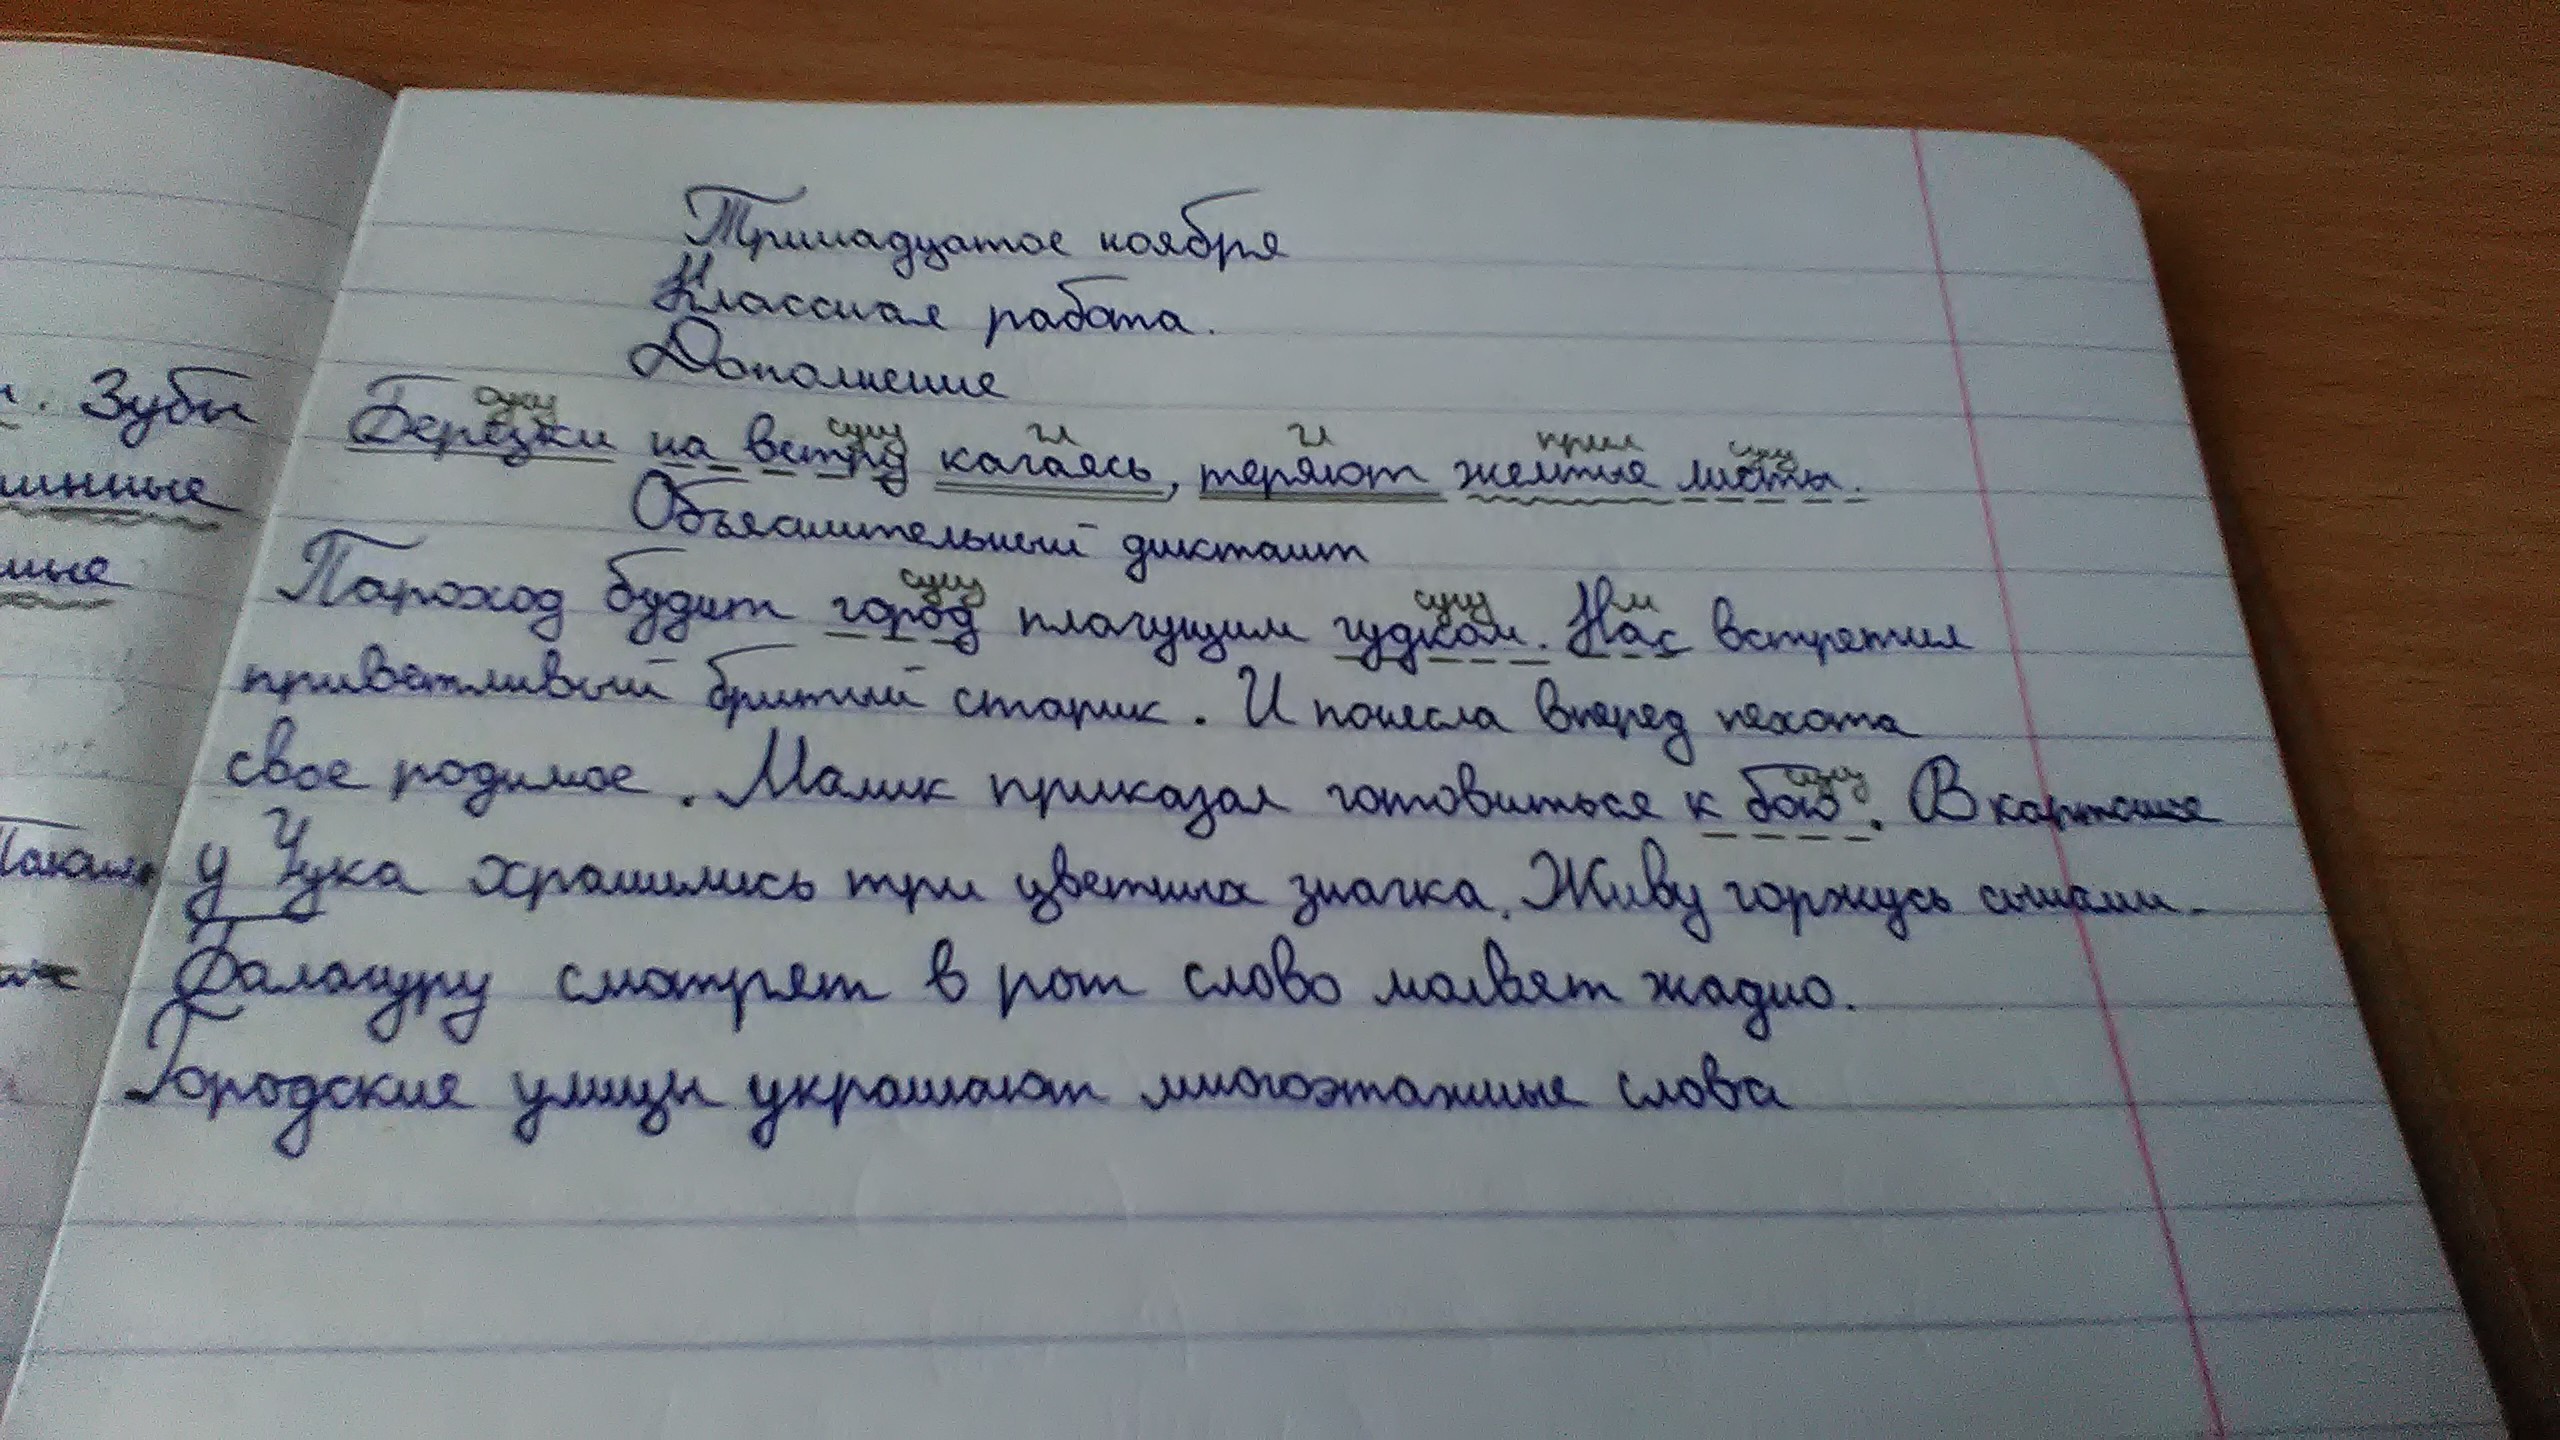 Тринадцатое ноября
Классная работа.
Дополнение
сущ сущ г г прил сущ
Берёзки на ветру качаясь, теряют желтые листы.
Объяснительный диктант
сущ сущ м
Пароход будит город плачущим гудком. Нас встретил
приветливый бритый старик. И понесла вперед пехота
сущ
свое родимое. Малик приказал готовиться к бою. В картонке
у Чука хранились три цветных значка. Живу горжусь сынами.
Балагуру смотрят в рот слово молвят жадно.
Городские улицы украшают многоэтажные слова
. Зубы